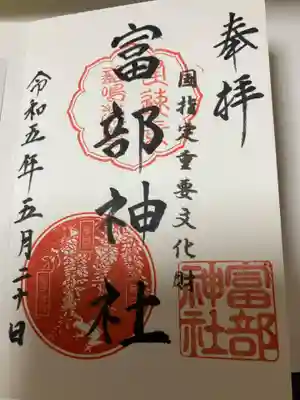 奉拝
国指定重要文化財
富部神社
富部
神社
令和五年五月二十日